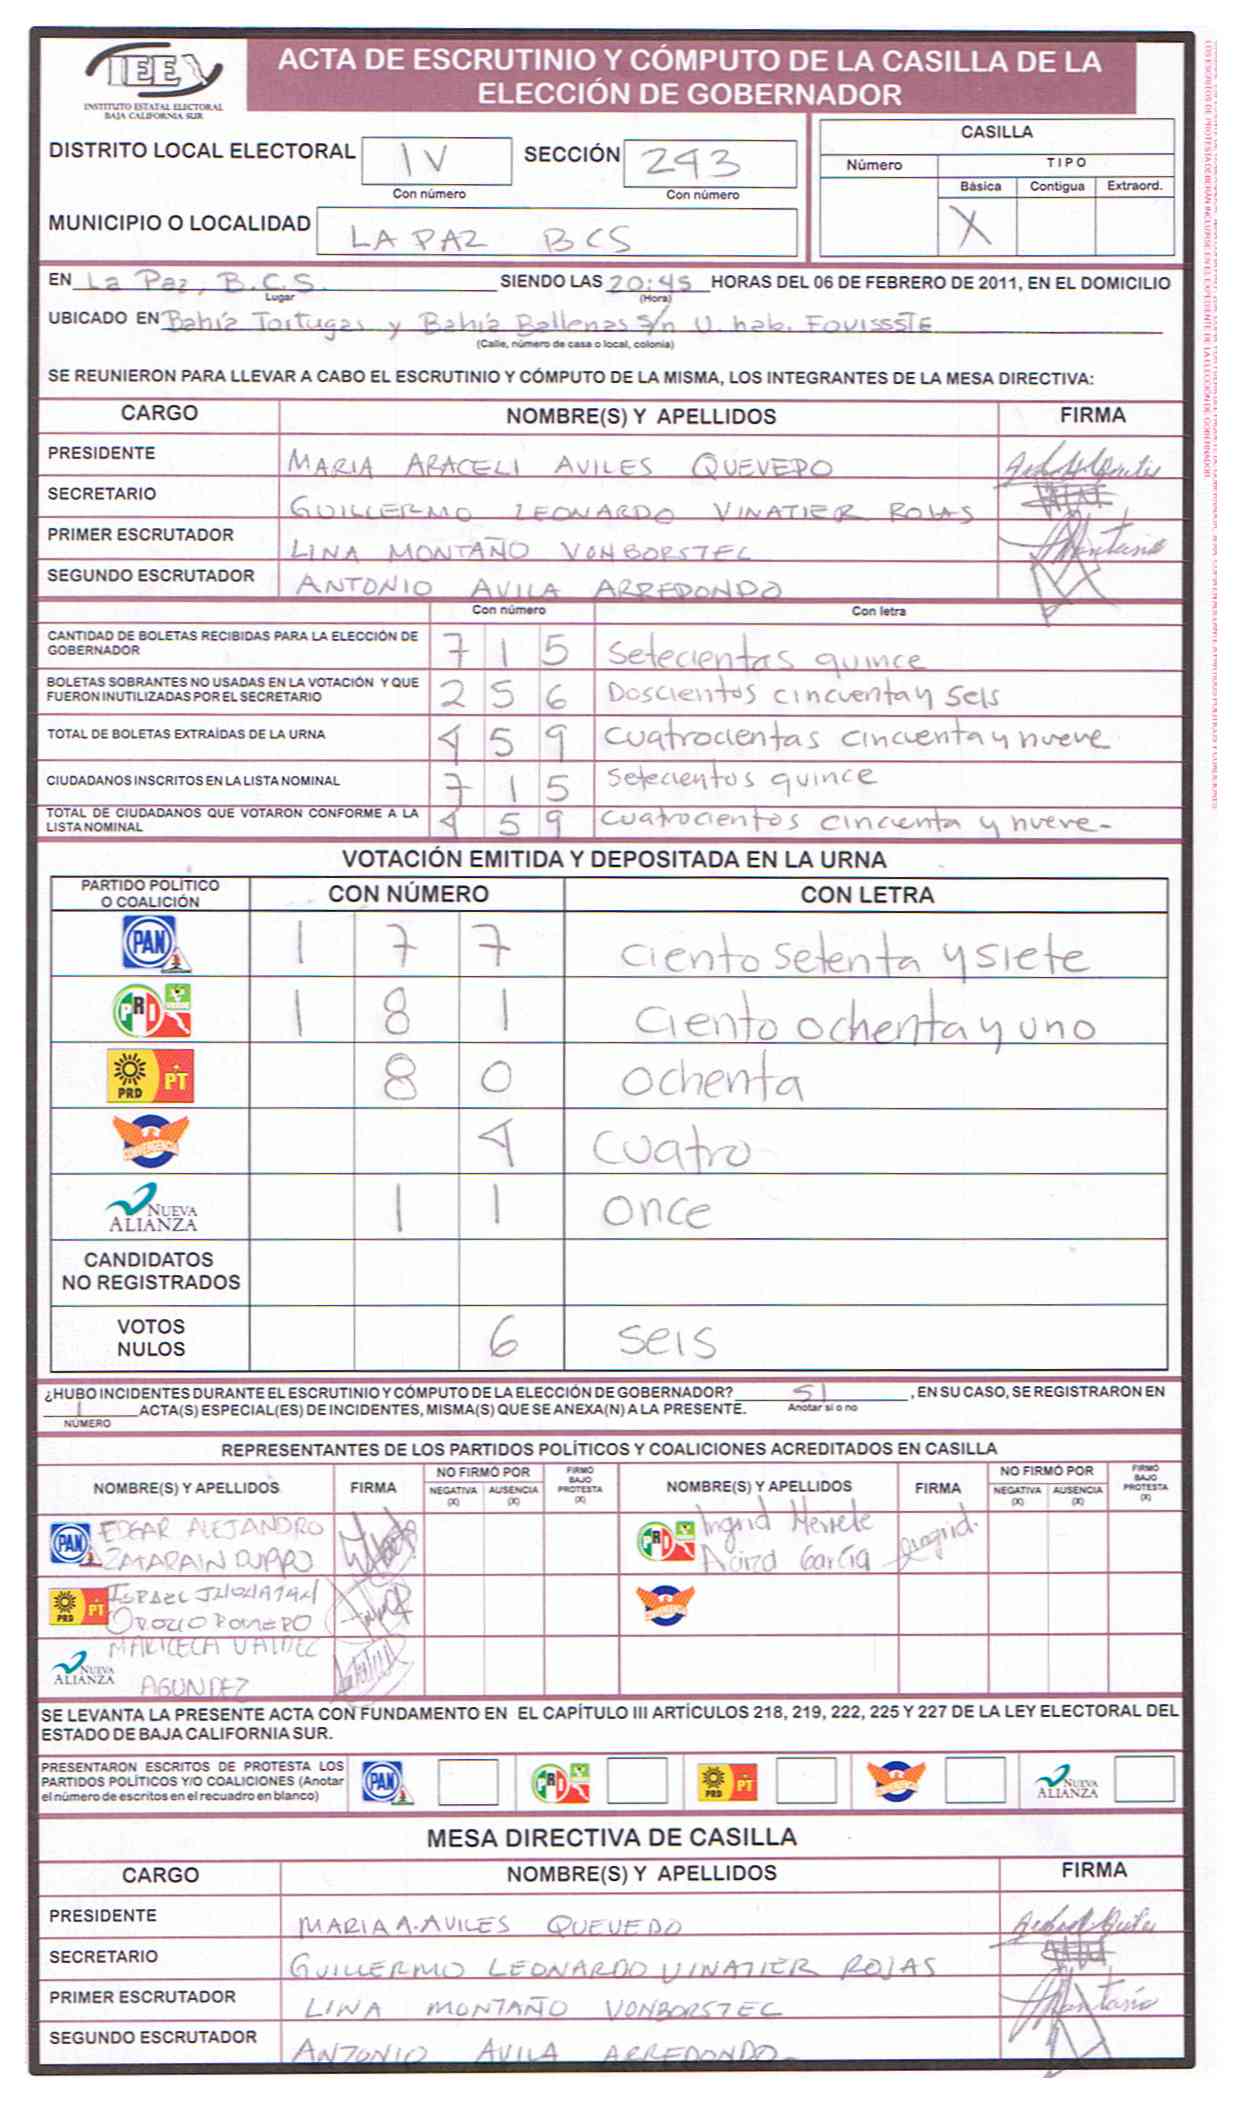 IEE
INSTITUTO ESTATAL ELECTORAL
BAJA CALIFORNIA SUR
ACTA DE ESCRUTINIO Y CÓMPUTO DE LA CASILLA DE LA
ELECCIÓN DE GOBERNADOR
DISTRITO LOCAL ELECTORAL IV SECCIÓN 243
Con número Con número
MUNICIPIO O LOCALIDAD LA PAZ BCS
CASILLA
Número TIPO
Básica Contigua Extraord.
X
EN La Paz, B.C.S. SIENDO LAS 20:45 HORAS DEL 06 DE FEBRERO DE 2011, EN EL DOMICILIO
Lugar (Hora)
UBICADO EN Bahía Tortugas y Bahía Ballenas s/n U. hab. FOVISSSTE
(Calle, número de casa o local, colonia)
SE REUNIERON PARA LLEVAR A CABO EL ESCRUTINIO Y CÓMPUTO DE LA MISMA, LOS INTEGRANTES DE LA MESA DIRECTIVA:
CARGO NOMBRE(S) Y APELLIDOS FIRMA
PRESIDENTE MARIA ARACELI AVILES QUEVEDO
SECRETARIO GUILLERMO LEONARDO VINATIER ROJAS
PRIMER ESCRUTADOR LINA MONTAÑO VONBORSTEC
SEGUNDO ESCRUTADOR ANTONIO AVILA ARREDONDO
Con número Con letra
CANTIDAD DE BOLETAS RECIBIDAS PARA LA ELECCIÓN DE
GOBERNADOR 7 1 5 Setecientas quince
BOLETAS SOBRANTES NO USADAS EN LA VOTACIÓN Y QUE
FUERON INUTILIZADAS POR EL SECRETARIO 2 5 6 Doscientos cincuenta y seis
TOTAL DE BOLETAS EXTRAÍDAS DE LA URNA 4 5 9 cuatrocientas cincuenta y nueve
CIUDADANOS INSCRITOS EN LA LISTA NOMINAL 7 1 5 Setecientos quince
TOTAL DE CIUDADANOS QUE VOTARON CONFORME A LA
LISTA NOMINAL 4 5 9 cuatrocientos cincuenta y nueve-
VOTACIÓN EMITIDA Y DEPOSITADA EN LA URNA
PARTIDO POLÍTICO
O COALICIÓN CON NÚMERO CON LETRA
PAN 1 7 7 ciento setenta y siete
PRI 1 8 1 ciento ochenta y uno
PRD PT 8 0 ochenta
CONVERGENCIA 4 cuatro
NUEVA ALIANZA 1 1 once
CANDIDATOS
NO REGISTRADOS
VOTOS
NULOS 6 seis
¿HUBO INCIDENTES DURANTE EL ESCRUTINIO Y CÓMPUTO DE LA ELECCIÓN DE GOBERNADOR? SI , EN SU CASO, SE REGISTRARON EN
Anotar sí o no
1 ACTA(S) ESPECIAL(ES) DE INCIDENTES, MISMA(S) QUE SE ANEXA(N) A LA PRESENTE.
NÚMERO
REPRESENTANTES DE LOS PARTIDOS POLÍTICOS Y COALICIONES ACREDITADOS EN CASILLA
NOMBRE(S) Y APELLIDOS FIRMA NO FIRMÓ POR NEGATIVA (X) AUSENCIA (X) FIRMÓ BAJO PROTESTA (X)
NOMBRE(S) Y APELLIDOS FIRMA NO FIRMÓ POR NEGATIVA (X) AUSENCIA (X) FIRMÓ BAJO PROTESTA (X)
PAN EDGAR ALEJANDRO
ZAMARAIN
PRI Ingrid
García
PRD PT
OROZCO ROMERO
NUEVA ALIANZA
AGUNDEZ
SE LEVANTA LA PRESENTE ACTA CON FUNDAMENTO EN EL CAPÍTULO III ARTÍCULOS 218, 219, 222, 225 Y 227 DE LA LEY ELECTORAL DEL
ESTADO DE BAJA CALIFORNIA SUR.
PRESENTARON ESCRITOS DE PROTESTA LOS
PARTIDOS POLÍTICOS Y/O COALICIONES (Anotar
el número de escritos en el recuadro en blanco)
PAN PRI PRD PT CONVERGENCIA NUEVA ALIANZA
MESA DIRECTIVA DE CASILLA
CARGO NOMBRE(S) Y APELLIDOS FIRMA
PRESIDENTE MARIA A. AVILES QUEVEDO
SECRETARIO GUILLERMO LEONARDO VINATIER ROJAS
PRIMER ESCRUTADOR LINA MONTAÑO VONBORSTEC
SEGUNDO ESCRUTADOR ANTONIO AVILA ARREDONDO-